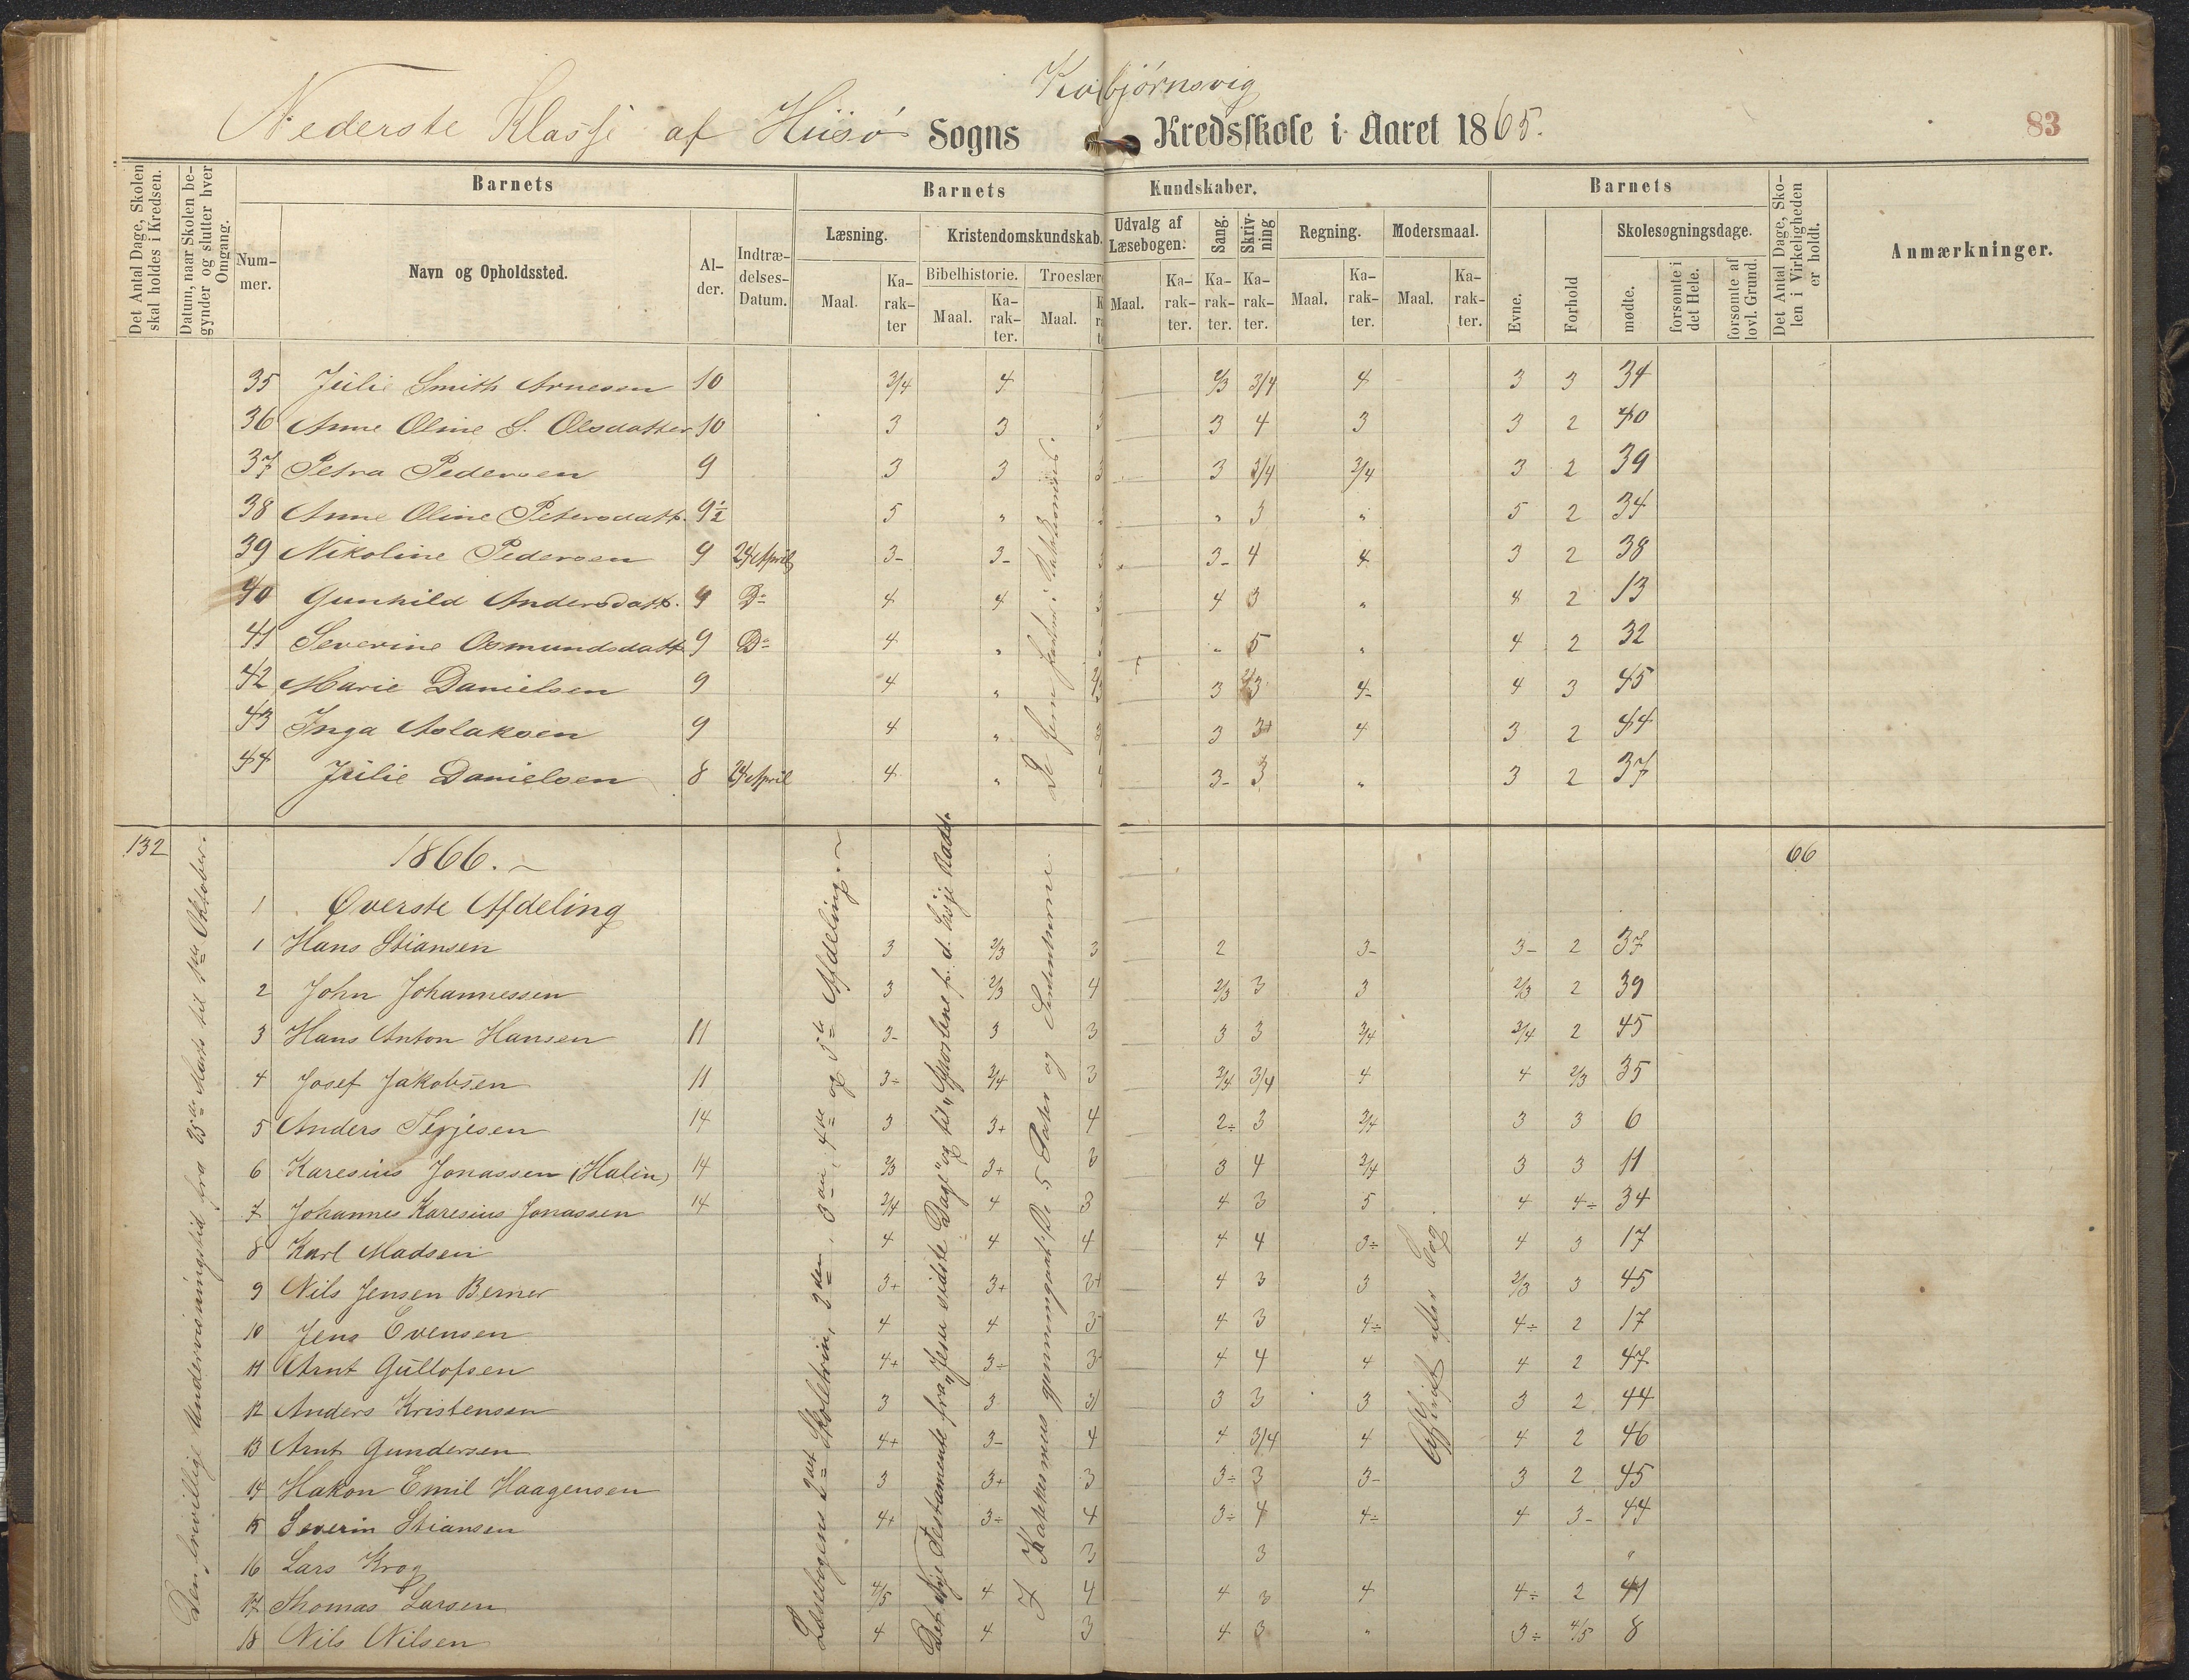 Kolbjørnsvig
Nederste Klasse af Hiisø Sogns Kredsskole i Aaret 1865.
83
Det Antal Dage, Skolen skal holdes i Kredsen.
Datum, naar Skolen begynder og slutter hver Omgang.
Barnets
Barnets Kundskaber.
Barnets
Det Antal Dage, Skolen i Virkeligheden er holdt.
Anmærkninger.
Nummer.
Navn og Opholdssted.
Alder.
Indtrædelses-Datum.
Læsning.
Kristendomskundskab.
Udvalg af Læsebogen.
Sang.
Skrivning
Regning.
Modersmaal.
Evne.
Forhold
Skolesøgningsdage.
Bibelhistorie.
Troeslære
Maal.
Karakter
Maal.
Karakter.
Maal.
Maal.
Karakter.
Karakter.
Karakter.
Maal.
Karakter.
Maal.
Karakter.
mødte.
forsømte i det Hele.
forsømte af lovl. Grund.
35 Julie Smith Arnesen 10 3/4 4 2/3 3/4 4 3 3 34
36 Anne Oline S. Olsdatter 10 3 3 3 3 4 3 3 2 40
37 Petra Pedersen 9 3 3 3 3 3/4 3/4 3 2 39
38 Anne Oline Petersdatt. 9½ 5 " " 3 " 5 2 34
39 Nikoline Pedersen 9 24 April 3- 3- 3 3- 4 4 3 2 38
40 Gunhild Andersdatt. 9 Do 4 4 3 4 3 " 4 2 13
41 Severine Osmundsdatt 9 Do 4 " " 5 " 4 2 32
42 Marie Danielsen 9 4 " 3 2/3 4- 4 3 45
43 Inga Aslaksen 9 4 " 3 3 3+ 4 3 2 44
44 Julie Danielsen 8 24 April 4 " 4 3- 3 " 3 2 37
De fem Parter i Katekismus.
132 1866. 66
Den frivillige Undervisningstid fra 25de Marts til 1ste Oktober.
1 Øverste Afdeling
1 Hans Stiansen 3 2/3 3 2 3- 3- 2 37
2 John Johannessen 3 2/3 4 2/3 3 3 2/3 2 39
3 Hans Anton Hansen 11 3- 3 3 3 3 3/4 3/4 2 45
4 Josef Jakobsen 11 3÷ 3/4 3 3/4 3/4 4 4 2/3 35
5 Anders Terjesen 14 3 3+ 4 2÷ 3 3/4 3 3 6
6 Karesius Jonassen (Halin) 14 2/3 3+ 3 3 4 3/4 3 3 11
7 Johannes Karesius Jonassen 14 3/4 4 3 4 3 5 4 4÷ 34
8 Karl Madsen 4 4 4 4 4 3÷ 4 3 17
9 Nils Jensen Berner 3+ 3+ 3+ 4 3 3 2/3 3 45
10 Jens Evensen 4 4 3- 4 3 4÷ 4÷ 2 17
11 Arnt Gullofsen 4+ 3÷ 3- 4 4 4 4 2 47
12 Anders Kristensen 3 3 3 3 3 3 3 2 44
13 Arnt Gundersen 4+ 3- 4 4 3/4 4 4 2 46
14 Hakon Emil Haagensen 3 3+ 3 3÷ 3 3- 3 2 45
15 Severin Stiansen 4+ 3÷ 4 3÷ 4 4÷ 4 3- 44
16 Lars Krog 3 3 "
17 Thomas Larsen 4/5 4 4 4 3 4 4÷ 2 41
18 Nils Nilsen 4 4 3 4 3 " 3÷ 4/5 8
Læsebogens 2det Skoletrin, 2den, 3die, 4de og 5te Afdeling.
Det Nye Testamente fra "Jesu sidste Dage" og til "Apostlene for d. høje Raad."
I Katekismus gjennemgaaet: De 5 Parter og
Afskrift efter Bog.